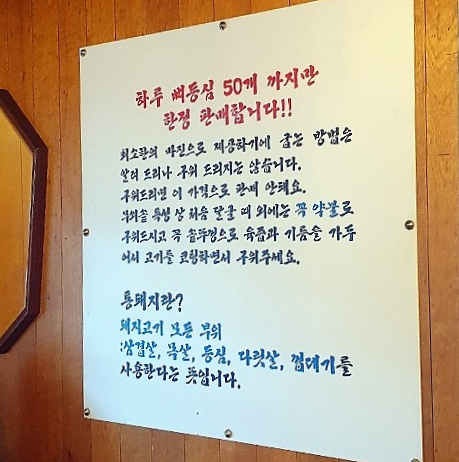 하루 뼈등심 50개 까지만
한정 판매합니다!!
최소한의 마진으로 제공하기에 굽는 방법은
알려 드리나 구워 드리지는 않습니다.
구워드리면 이 가격으로 판매 안돼요.
무쇠솥 특성 상 처음 달굴 때 외에는 꼭 약불로
구워드시고 꼭 솥뚜껑으로 육즙과 기름을 가두
어서 고기를 코팅하면서 구워주세요.
통돼지란?
돼지고기 모든 부위
:삼겹살, 목살, 등심, 다릿살, 껍데기를
사용한다는 뜻입니다.